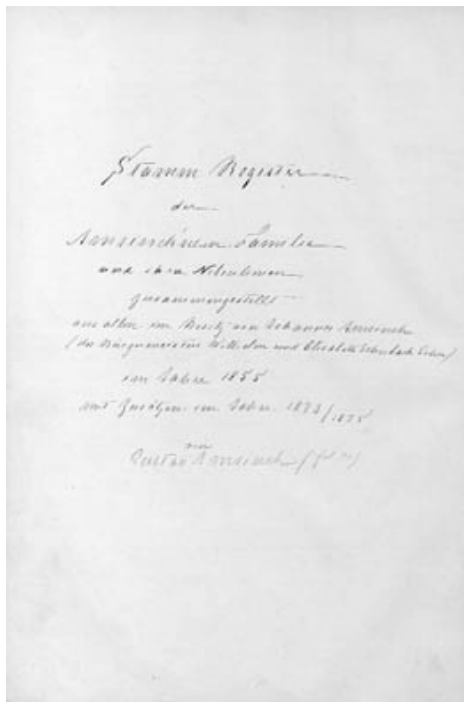 Stamm Register
der
Amsinck'schen Familie
und ihrer Nebenlinien
zusammengestellt
aus allen im Besitz von Johannes Amsinck
(des Bürgermeisters Wilhelm und Elisabeth Sohn)
im Jahre 1855
mit Zusätzen im Jahre 1873/1875
von
Gustav Amsinck